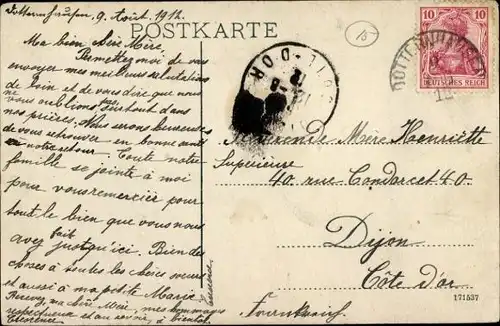 Dotternhausen, 9. Août 1912.
POSTKARTE
Ma bien chère Mère,
Permettez moi de vous
envoyer mes meilleures salutations
de loin et de vous dire que nous
vous oublions pas surtout dans
nos prières. Nous serons heureuses
de vous retrouver en bonne santé
à notre retour. Toute notre
famille se joint à moi
pour vous remercier pour
tout le bien que vous nous
avez fait jusqu'ici. Bien des
choses à toutes les chères soeurs
et aussi à ma petite Marie
Recevez, ma chère Mère, mes hommages
respectueux et au revoir, à bientôt
15
10 10
DEUTSCHES REICH
DOTTERNHAUSEN
12
D'OR
Révérende Mère Henriette
Supérieure
40 rue Condorcet 40
Dijon
Côte d'or
Frankreich
171537